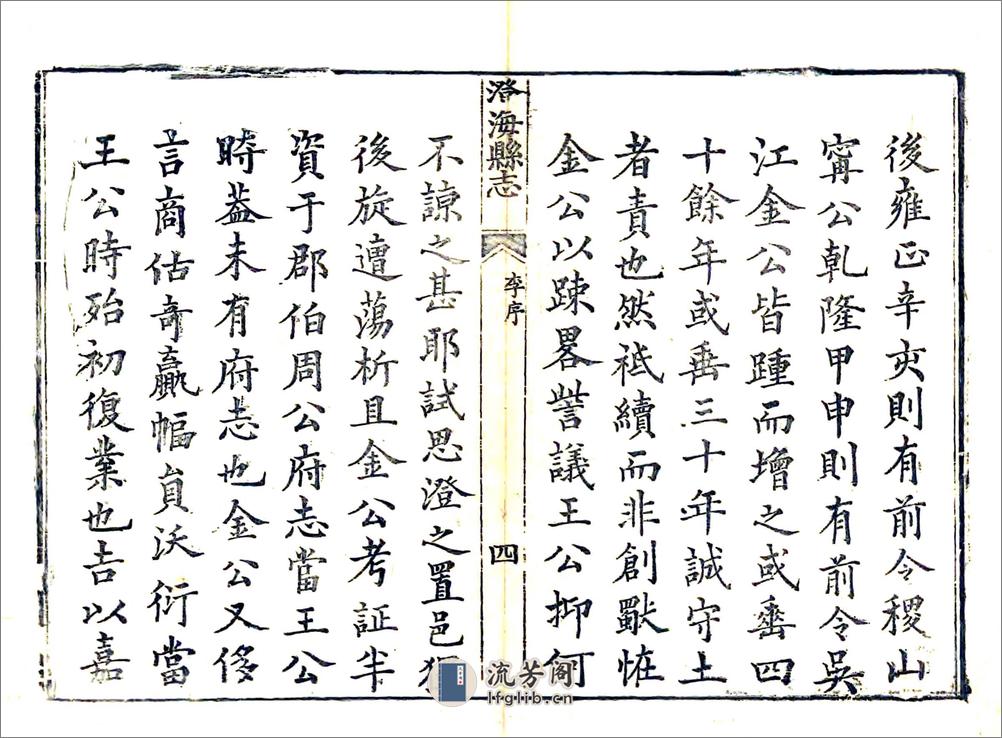 後雍正辛亥則有前令稷山
甯公乾隆甲申則有前令吳
江金公皆踵而增之或垂四
十餘年或垂三十年誠守土
者責也然祗續而非創獸恠
金公以踈畧訾議王公抑何
澄海縣志
李序
四
不諒之甚耶試思澄之置邑
後旋遭蕩析且金公考証半
資于郡伯周公府志當王公
時葢未有府志也金公又侈
言商估奇贏幅員沃衍當
王公時殆初復業也吉以嘉
流芳阁
lfglib.cn